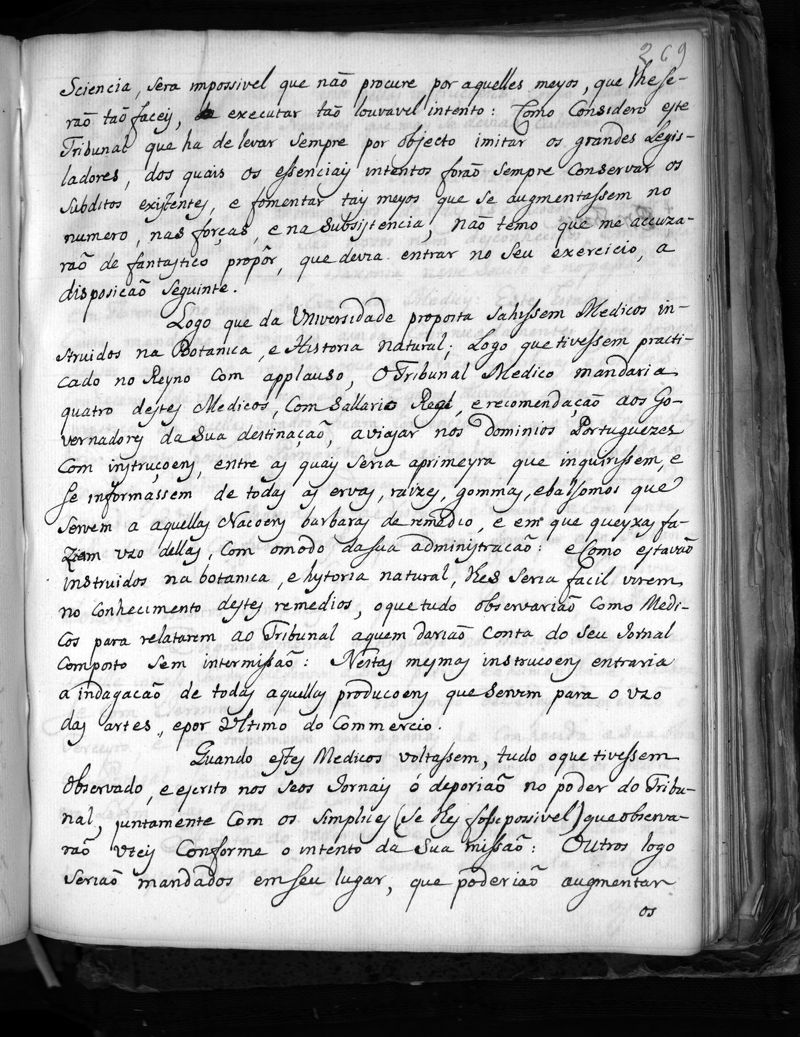 269
Sciencia, sera mpossivel que naõ procure por aquelles meyos, que lhe se-
raõ taõ facey, de executar taõ louvavel intento: Como Considero este
Tribunal que ha de levar sempre por objecto imitar os grandes Legis-
ladores, dos quais os essenciays intentos foraõ sempre Conservar os
subditos existentes, e fomentar tays meyos que se augmentassem no
numero, nas forças, e na subsistencia, Naõ temo que me accuza-
raõ de fantastico propôr, que devia entrar no seu exercicio, a
disposicaõ seguinte.
Logo que da Universidade proposta sahissem Medicos in-
struidos na Botanica, e Historia natural; Logo que tivessem practi-
cado no Reyno com applauso, O Tribunal Medico mandaria
quatro destes Medicos, Com Sallario Regi, e recomendaçaõ aos Go-
vernadores da Sua destinaçaõ, aviajar nos dominios Portuguezes
Com instruçoens, entre as quays seria aprimeyra que inquirissem, e
se informassem de todas as ervas, raizes, gommas, ebalsomos que
servem a aquellas Nacoens barbaras de remedio, e em que queyxas fa-
ziem uzo dellas, Com omodo da sua administracaõ: e Como estavaõ
instruidos na botanica, e hystoria natural, lhes seria facil virem
no Conhecimento destes remedios, oque tudo observariaõ Como Medi-
cos para relatarem ao Tribunal aquem dariaõ Conta do seu Jornal
Composto sem intermissaõ: Nestas mesmas instrucoens entraria
a indagacaõ de todas aquellas producoens que servem para o uzo
das artes, epor Ultimo do Commercio.
Quando estes Medicos voltassem, tudo oque tivessem
Observado, e escrito nos seos Jornays ó deporiaõ no poder do Tribu-
nal, juntamente Com os simplices (se lhes fosse possivel) que observa-
raõ uteis Conforme o intento da Sua missaõ: Outros logo
seriaõ mandados em seu lugar, que poderiaõ augmentar
os